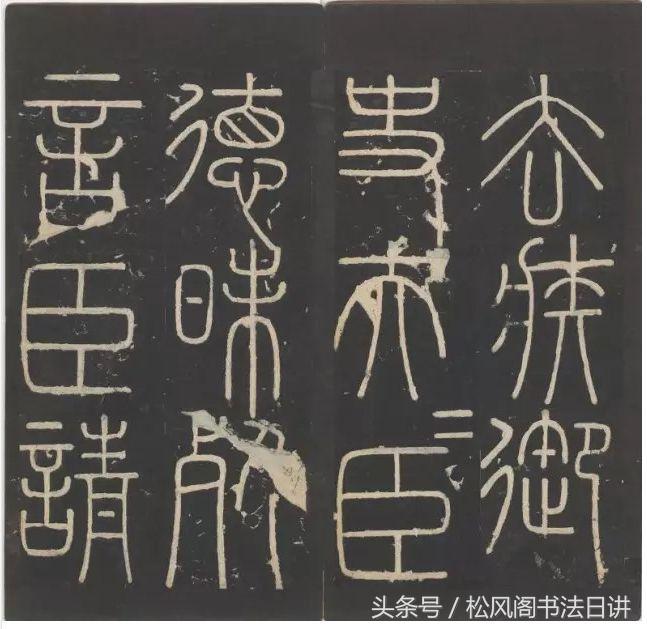 去疾御
史夫〻臣
德昧死
言臣請
头条号 / 松风阁书法日讲